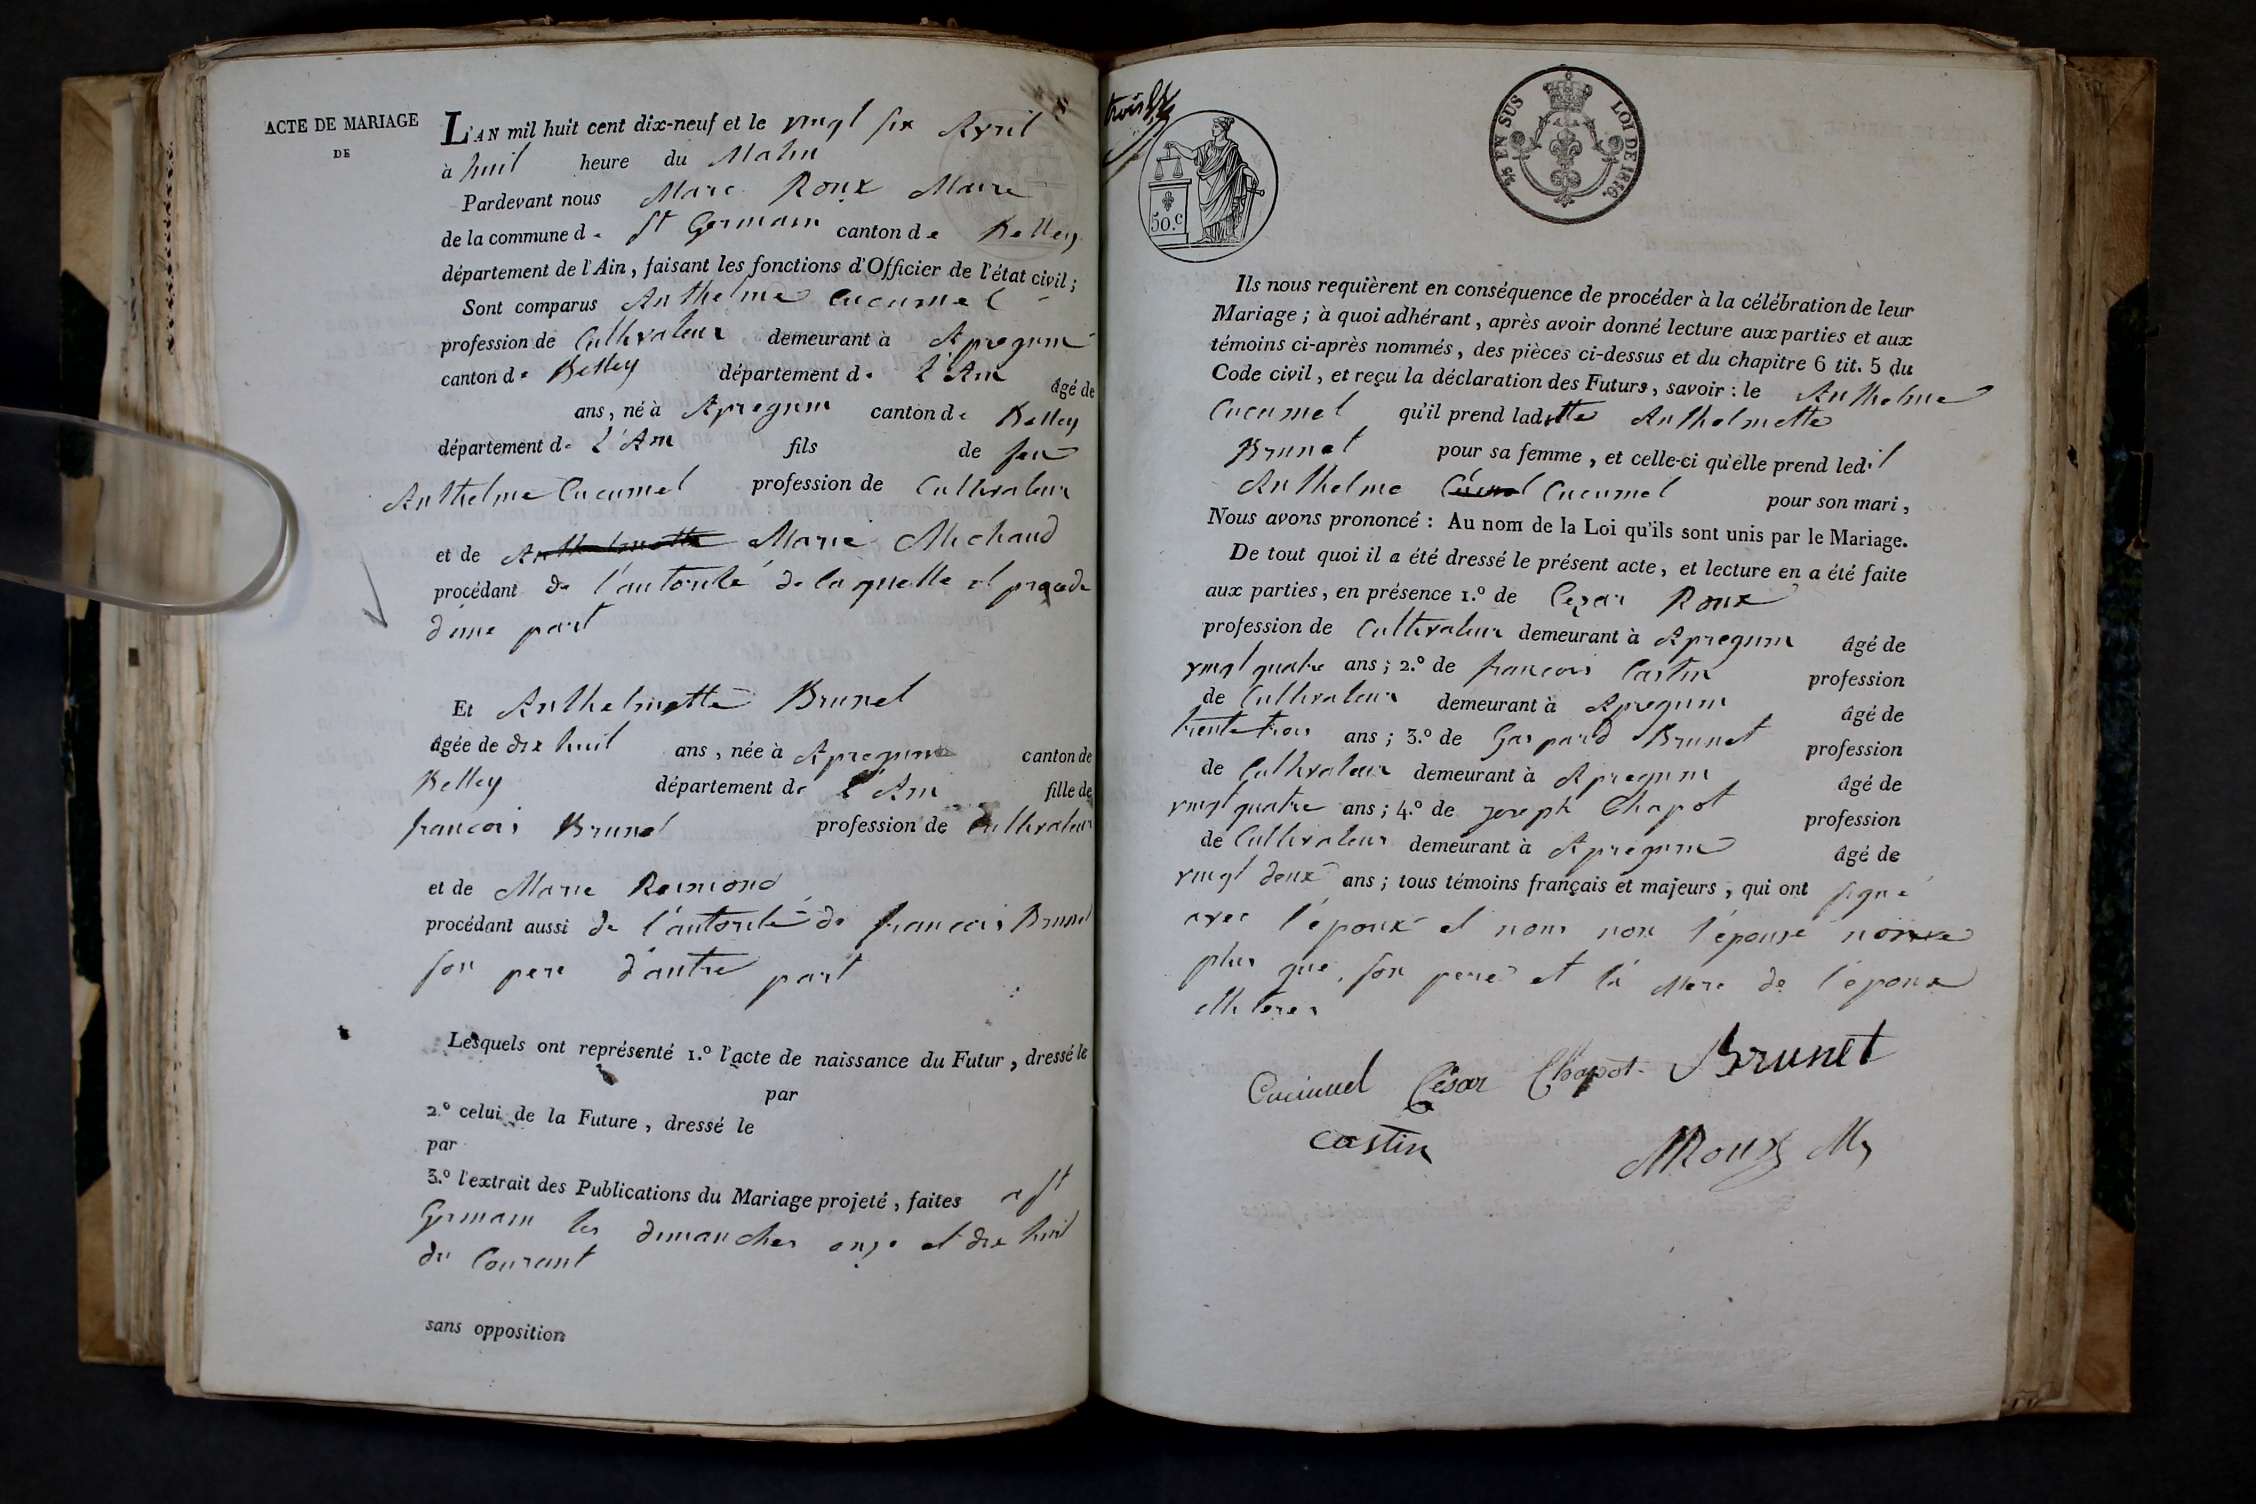 ACTE DE MARIAGE
DE
L'AN mil huit cent dix-neuf et le vingt six Avril
à huit heure du Matin
Pardevant nous Marc Roux Maire
de la commune de St Germain canton de Belley
département de l'Ain, faisant les fonctions d'Officier de l'état civil;
Sont comparus Anthelme Cucumel
profession de Cultivateur demeurant à Apregnin
canton de Belley département de L'Ain âgé de
ans, né à Apregnin canton de Belley
département de L'Ain fils de feu
Anthelme Cucumel profession de Cultivateur
et de Anthelmette Marie Michaud
procédant de l'autorité de laquelle il procede
d'une part
Et Anthelmette Brunet
âgée de dix huit ans, née à Apregnin canton de
Belley département de L'Ain fille de
francois Brunet profession de Cultivateur
et de Marie Reimond
procédant aussi de l'autorité de francois Brunet
son pere d'autre part
Lesquels ont représenté 1.º l'acte de naissance du Futur, dressé le
par
2.º celui de la Future, dressé le
par
3.º l'extrait des Publications du Mariage projeté, faites a St
Germain les dimanches onze et dix huit
du Courant
sans opposition
50.c
25 EN SUS LOI DE 1816.
Ils nous requièrent en conséquence de procéder à la célébration de leur
Mariage; à quoi adhérant, après avoir donné lecture aux parties et aux
témoins ci-après nommés, des pièces ci-dessus et du chapitre 6 tit. 5 du
Code civil, et reçu la déclaration des Futurs, savoir: le Anthelme
Cucumel qu'il prend laditte Anthelmette
Brunet pour sa femme, et celle-ci qu'elle prend ledit
Anthelme Cucumel pour son mari,
Nous avons prononcé: Au nom de la Loi qu'ils sont unis par le Mariage.
De tout quoi il a été dressé le présent acte, et lecture en a été faite
aux parties, en présence 1.º de Cezar Roux
profession de Cultivateur demeurant à Apregnin âgé de
vingt quatre ans; 2.º de francois Castin profession
de Cultivateur demeurant à Apregnin âgé de
trente trois ans; 3.º de Gaspard Brunet profession
de Cultivateur demeurant à Apregnin âgé de
vingt quatre ans; 4.º de Joseph Chapot profession
de Cultivateur demeurant à Apregnin âgé de
vingt deux ans; tous témoins français et majeurs, qui ont signé
avec l'époux et nous non l'épouse non
plus que son pere et la Mere de l'époux
illiteres
Cucumel César Chapot Brunet
Castin MRoux